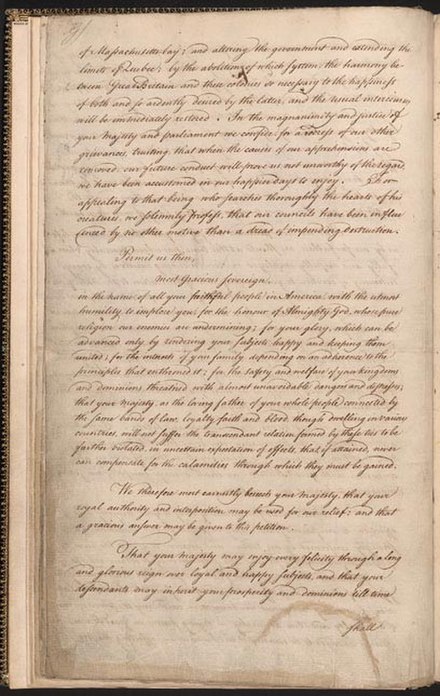 of Massachusetts-bay; and altering the government and extending the
limits of Quebec; by the abolition of which system, the harmony be-
tween Great Britain and these colonies so necessary to the happiness
of both and so ardently desired by the latter, and the usual intercourses
will be immediately restored. In the magnanimity and justice of
your majesty and parliament we confide, for a redress of our other
grievances, trusting, that when the causes of our apprehensions are
removed, our future conduct will prove us not unworthy of the regard,
we have been accustomed in our happier days to enjoy. For
appealing to that being who searches thoroughly the hearts of his
creatures, we solemnly profess, that our councils have been influ-
enced by no other motive than a dread of impending destruction.
Permit us then,
Most Gracious Sovereign,
in the name of all your faithful people in America, with the utmost
humility to implore you, for the honour of Almighty God, whose pure
religion our enemies are undermining; for your glory, which can be
advanced only by rendering your subjects happy and keeping them
united; for the interests of your family depending on an adherence to the
principles that enthroned it; for the safety and welfare of your kingdoms
and dominions threatned with almost unavoidable dangers and distresses;
that your majesty, as the loving father of your whole people, connected by
the same bands of law, loyalty, faith and blood, though dwelling in various
countries, will not suffer the transcendant relation formed by these ties to be
farther violated, in uncertain expectation of effects, that, if attained, never
can compensate for the calamities, through which they must be gained.
We therefore most earnestly beseech your majesty, that your
royal authority and interposition may be used for our relief; and that
a gracious answer may be given to this petition.
That your majesty may enjoy every felicity through a long
and glorious reign over loyal and happy subjects, and that your
descendants may inherit your prosperity and dominions till time
shall